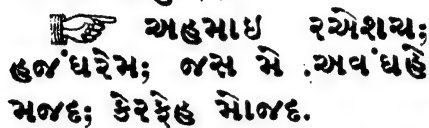 અહમાઇ રએશચ;
હજંઘરેમ; જસ મે .અવંઘહે
મજદ; કેરફેહ મોજદ.